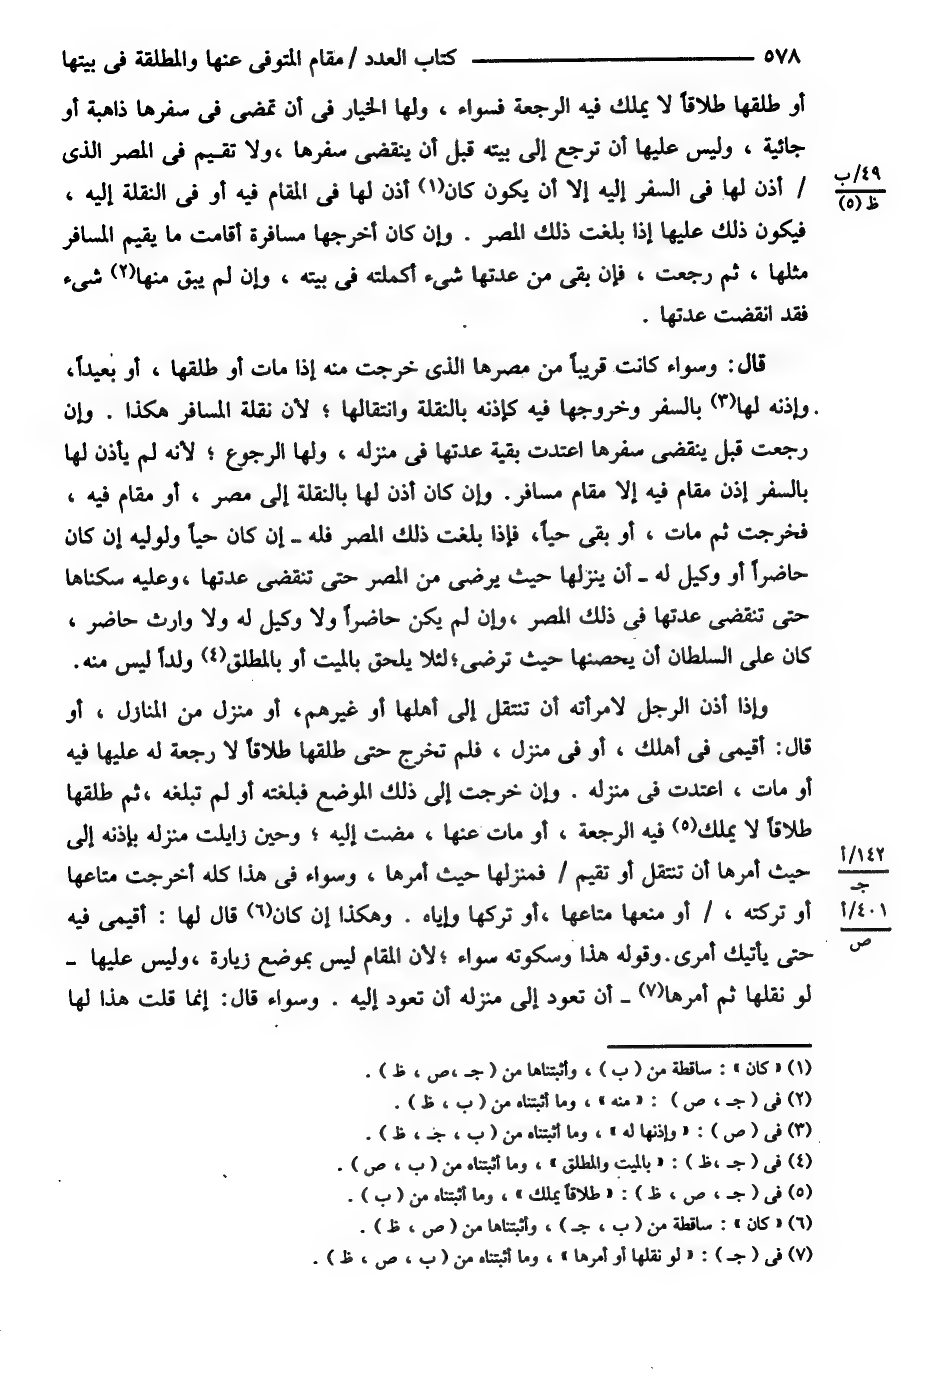 ٥٧٨ ــــــــــــ كتاب العدد / مقام المتوفى عنها والمطلقة فى بيتها
أو طلقها طلاقاً لا يملك فيه الرجعة فسواء ، ولها الخيار فى أن تمضى فى سفرها ذاهبة أو
جائية ، وليس عليها أن ترجع إلى بيته قبل أن ينقضى سفرها ،ولا تقيم فى المصر الذى
٤٩/ب
ظ (٥)
/ أذن لها فى السفر إليه إلا أن يكون كان(١) أذن لها فى المقام فيه أو فى النقلة إليه ،
فيكون ذلك عليها إذا بلغت ذلك المصر . وإن كان أخرجها مسافرة أقامت ما يقيم المسافر
مثلها ، ثم رجعت ، فإن بقى من عدتها شىء أكملته فى بيته ، وإن لم يبق منها(٢) شىء
فقد انقضت عدتها .
قال: وسواء كانت قريباً من مصرها الذى خرجت منه إذا مات أو طلقها ، أو بعيداً،
وإذنه لها(٣) بالسفر وخروجها فيه كإذنه بالنقلة وانتقالها ؛ لأن نقلة المسافر هكذا . وإن
رجعت قبل ينقضى سفرها اعتدت بقية عدتها فى منزله ، ولها الرجوع ؛ لأنه لم يأذن لها
بالسفر إذن مقام فيه إلا مقام مسافر. وإن كان أذن لها بالنقلة إلى مصر ، أو مقام فيه ،
فخرجت ثم مات ، أو بقى حياً، فإذا بلغت ذلك المصر فله ــ إن كان حياً ولوليه إن كان
حاضراً أو وكيل له ــ أن ينزلها حيث يرضى من المصر حتى تنقضى عدتها ،وعليه سكناها
حتى تنقضى عدتها فى ذلك المصر ،وإن لم يكن حاضراً ولا وكيل له ولا وارث حاضر ،
كان على السلطان أن يحصنها حيث ترضى؛لئلا يلحق بالميت أو بالمطلق(٤) ولداً ليس منه.
وإذا أذن الرجل لامرأته أن تنتقل إلى أهلها أو غيرهم، أو منزل من المنازل ، أو
قال: أقيمى فى أهلك ، أو فى منزل ، فلم تخرج حتى طلقها طلاقاً لا رجعة له عليها فيه
أو مات ، اعتدت فى منزله . وإن خرجت إلى ذلك الموضع فبلغته أو لم تبلغه ،ثم طلقها
طلاقاً لا يملك(٥) فيه الرجعة ، أو مات عنها ، مضت إليه ؛ وحين زايلت منزله بإذنه إلى
١٤٢/أ
جـ
حيث أمرها أن تنتقل أو تقيم / فمنزلها حيث أمرها ، وسواء فى هذا كله أخرجت متاعها
٤٠١/أ
ص
أو تركته ، / أو منعها متاعها ،أو تركها وإياه . وهكذا إن كان(٦) قال لها : أقيمى فيه
حتى يأتيك أمرى.وقوله هذا وسكوته سواء ؛لأن المقام ليس بموضع زيارة ،وليس عليها ــ
لو نقلها ثم أمرها(٧) ــ أن تعود إلى منزله أن تعود إليه . وسواء قال: إنما قلت هذا لها
(١) « كان » : ساقطة من ( ب ) ، وأثبتناها من ( جـ ،ص ، ظ ) .
(٢) فى ( جـ ، ص ) : « منه » ، وما أثبتناه من ( ب ، ظ ) .
(٣) فى ( ص ) : « وإذنها له » ، وما أثبتناه من ( ب ، جـ ، ظ ) .
(٤) فى ( جـ ،ظ ) : « بالميت والمطلق » ، وما أثبتناه من ( ب ، ص ) .
(٥) فى ( جـ ، ص ، ظ ) : « طلاقاً يملك » ، وما أثبتناه من ( ب ) .
(٦) « كان » : ساقطة من ( ب ، جـ ) ، وأثبتناها من ( ص ، ظ ) .
(٧) فى ( جـ ) : « لو نقلها أو أمرها » ، وما أثبتناه من ( ب ، ص ، ظ ) .